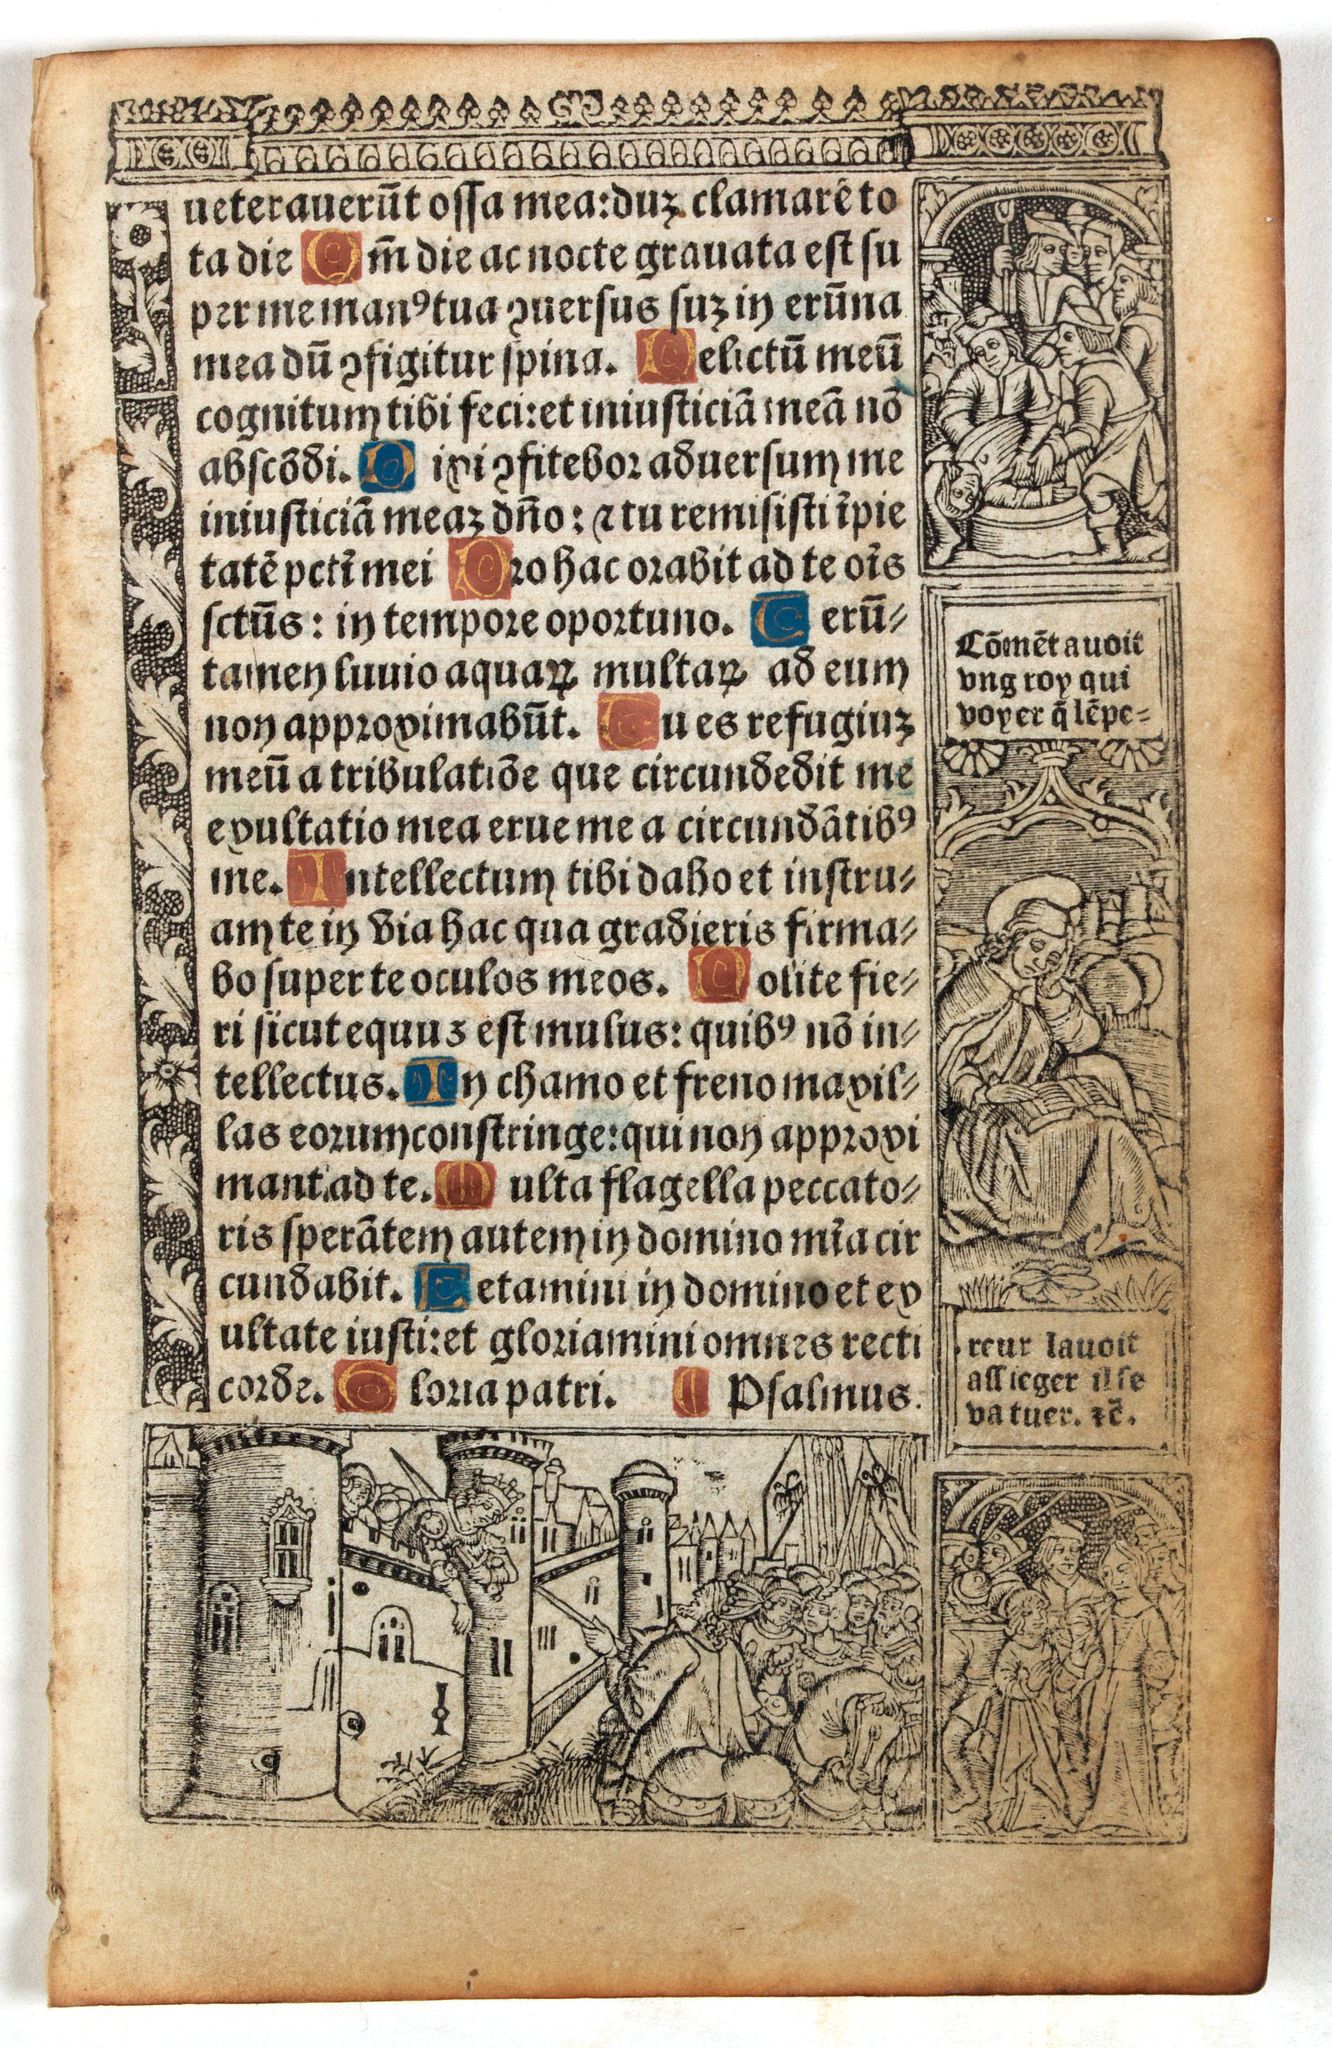 ueterauerūt ossa mea: duȝ clamarē to
ta die Qm̄ die ac nocte grauata est su
per me manꝰ tua ꝯuersus suȝ in erūna
mea dū ꝯfigitur spina. Delictū meū
cognitum tibi feci: et iniusticiā meā nō
abscōdi. Dixi ꝯfitebor aduersum me
iniusticiā meaȝ dn̄o: ⁊ tu remisisti īpie
tatē pctī mei Pro hac orabit ad te oīs
sctūs: in tempore oportuno. Uerū-
tamen luuio aquaꝝ multaꝝ ad eum
non approximabūt. Tu es refugiuȝ
meū a tribulatiōe que circundedit me
exultatio mea erue me a circundātibꝰ
me. Intellectum tibi dabo et instru-
am te in via hac qua gradieris firma-
bo super te oculos meos. Nolite fie-
ri sicut equus est mulus: quibꝰ nō in-
tellectus. In chamo et freno maxil-
las eorum constringe: qui non approxi
mant ad te. Multa flagella peccato-
ris sperātem autem in domino mīa cir
cundabit. Letamini in domino et ex
ultate iusti: et gloriamini omnes recti
corde. Gloria patri. Psalmus.
Cōmēt auoit
vng roy qui
voyer q̄ lēpe-
reur lauoit
assieger il se
va tuer. ⁊c̄.